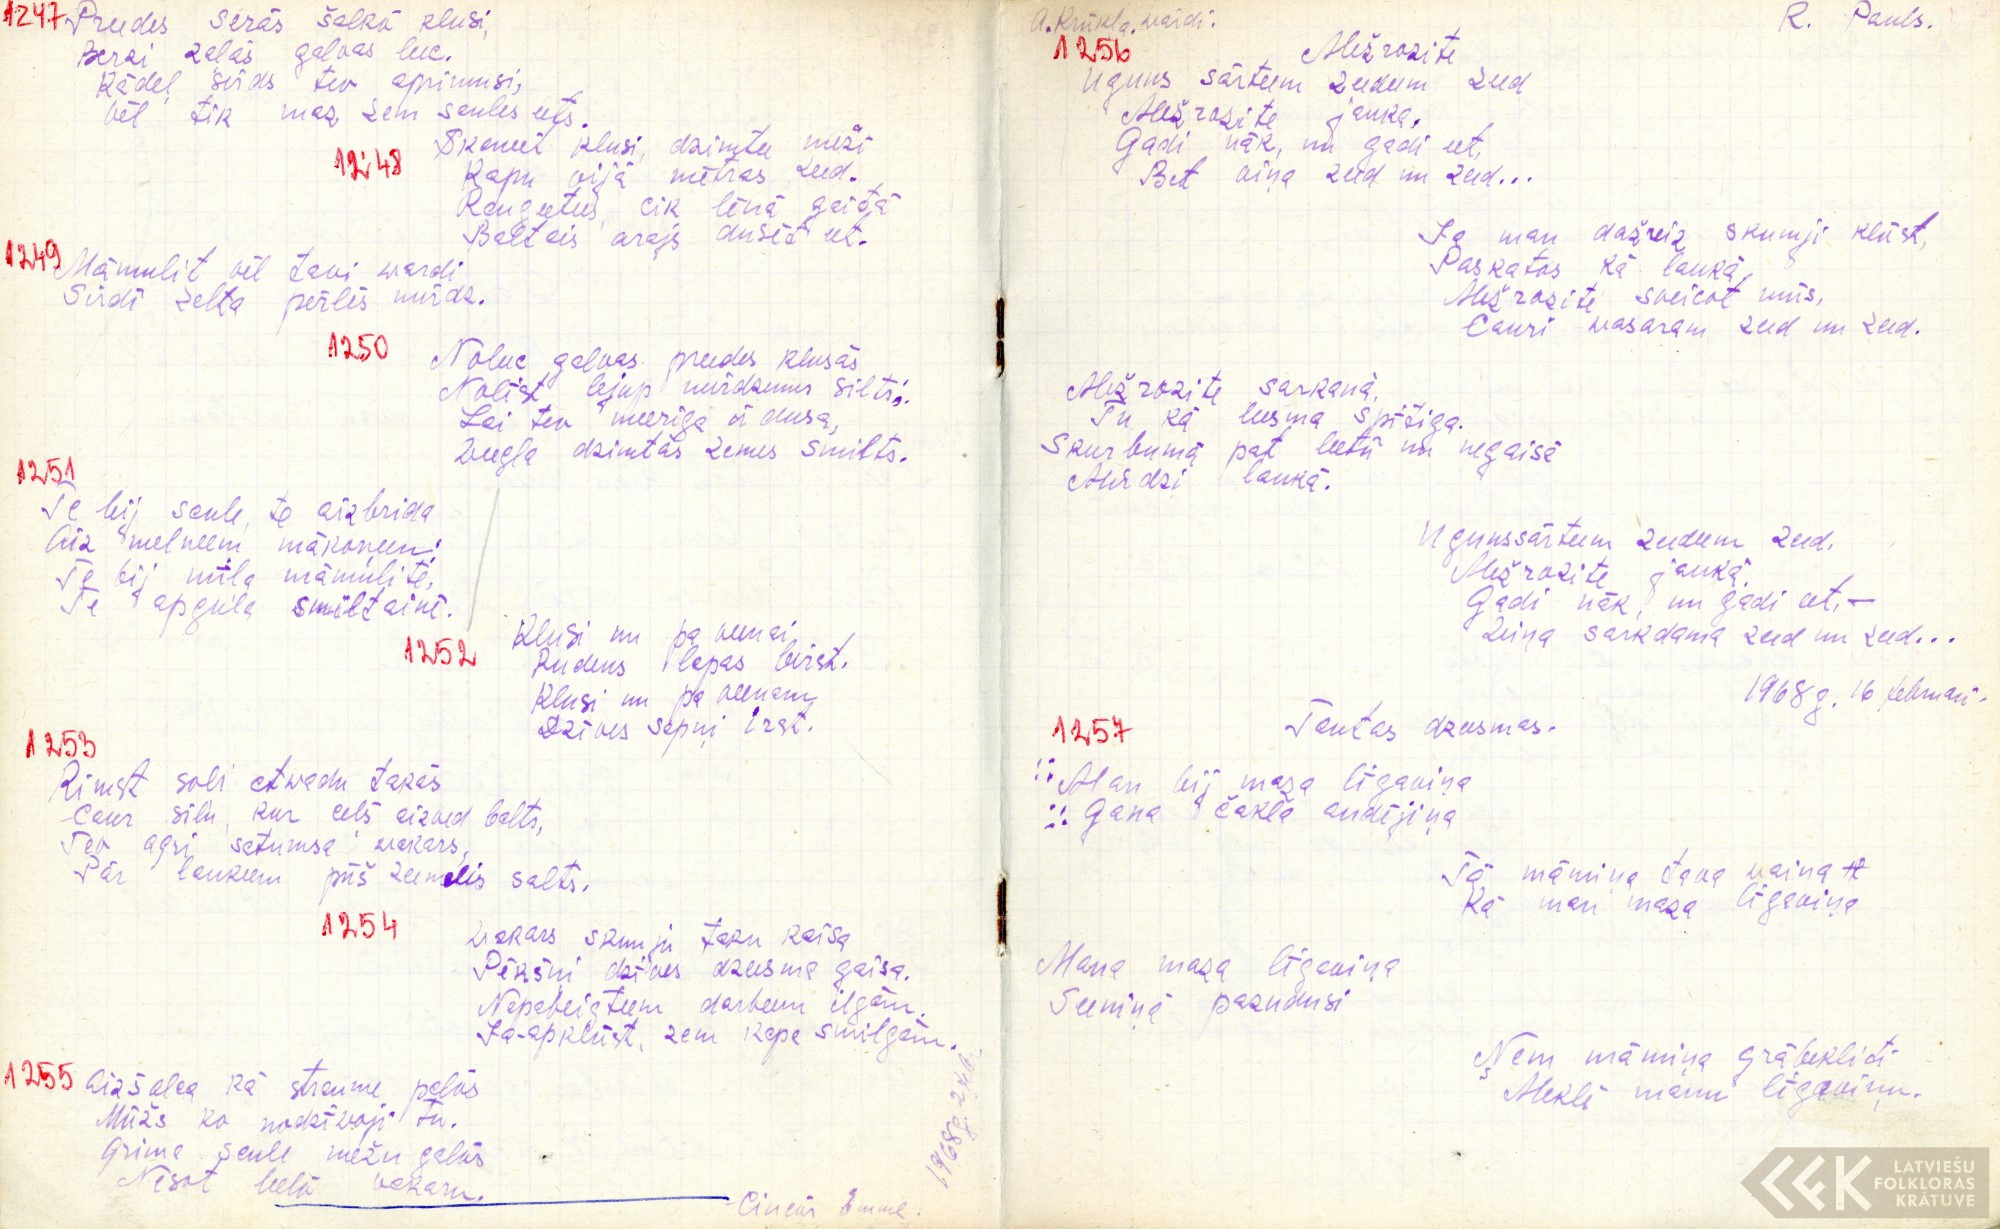 1247
Preedes serās šalkā klusi,
Berzi zaļās galvas leec.
Kādeļ sirds tev aprimusi,
Vēl tik maz zem saules eets.
1248
Skaneet klusi, dzimtee meži
Kapu vijā mētras zeed.
Raugeetees, cik lēnā gaitā
Baltais arajs dusēt eet.
1249
Māmulit vēl tavi wardi
Sirdī zelta pērlēs mirdz.
1250
Noleec galvas preedes klusās
Nolīst lejup mirdzums silts;
Lai tev meeriga ir dusa,
Veegla dzimtās zemes smilts.
1251
Te bij saule, te aizbrida
Aiz melneem mākoneem;
Te bij mīļa māmulite,
Te apgula smiltainē.
1252
Klusi un pa veenai
Rudens lapas birst.
Klusi un pa veenam
Dzīves sapņi irst.
1253
Rimst soli atwadu takās
Caur silu, kur ceļš aizved balts,
Tev agri satumsa wakars,
Pār laukeem pūš zeemelis salts.
1254
Wakars skumju taku kaisa
Pēkšņi dzīves dzeesma gaisa.
Nepabeigteem darbeem ilgām.
Ja-apklūst, zem kapa smilgām.
1255
Aizšalca kā straume palos
Mūžs ko nodzīvoji tu.
Grima saule mežu galos
Nesot leelo vakaru.
Cincūs Emma.
1968g. 27 feb.
A. Krūkla. wārdi.
R. Pauls.
1256
Mežrozite
Uguns sārteem zeedeem zeed
Mežrozite jauka,
Gadi nāk, un gadi eet,
Bet viņa zeed un zeed...
Ja man dažreiz skumji klūst,
Paskatos kā laukā,
Mežrozite sveicot mūs,
Cauri wasaram zeed un zeed.
Mežrozite sarkanā,
Tu kā leesma spītiga.
Skurbumā pat leetū un negaisā
Mirdzi laukā.
Ugunssārteem zeedeem zeed.
Mežrozite jaukā,
Gadi nāk, un gadi eet, –
Viņa sarkdama zeed un zeed...
1968g. 16 februari.
1257
Tautas dzeesmas.
:: Man bij maza līgaviņa
:: Gana čakla audējiņa
Tā māmiņa tava vaiņa
Kā man maza līgaviņa
Mana maza līgaviņa
Seeniņā pazudusi
Ņem māmiņa grābekliti
Meklē manu līgaviņu.
LATVIEŠU
FOLKLORAS
KRĀTUVE